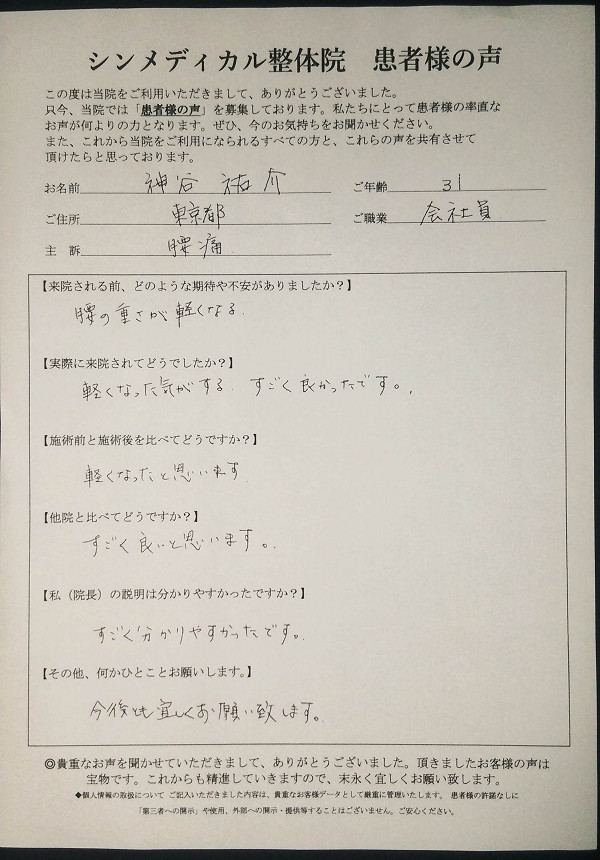 シンメディカル整体院 患者様の声
この度は当院をご利用いただきまして、ありがとうございました。
只今、当院では「患者様の声」を募集しております。私たちにとって患者様の率直な
お声が何よりの力となります。ぜひ、今のお気持ちをお聞かせください。
また、これから当院をご利用になられるすべての方と、これらの声を共有させて
頂けたらと思っております。
お名前 神谷 祐介 ご年齢 31
ご住所 東京都 ご職業 会社員
主 訴 腰痛
【来院される前、どのような期待や不安がありましたか?】
腰の重さが軽くなる.
【実際に来院されてどうでしたか?】
軽くなった気がする. すごく良かったです。.
【施術前と施術後を比べてどうですか?】
軽くなったと思います
【他院と比べてどうですか?】
すごく良いと思います。.
【私(院長)の説明は分かりやすかったですか?】
すごく分かりやすかったです。.
【その他、何かひとことお願いします。】
今後とも宜しくお願い致します。
◎貴重なお声を聞かせていただきまして、ありがとうございました。頂きましたお客様の声は
宝物です。これからも精進していきますので、末永く宜しくお願い致します。
◆個人情報の取扱について ご記入いただきました内容は、貴重なお客様データとして厳重に管理いたします。 患者様の許諾なしに
「第三者への開示」や使用、外部への開示・提供等することはございません。ご安心ください。